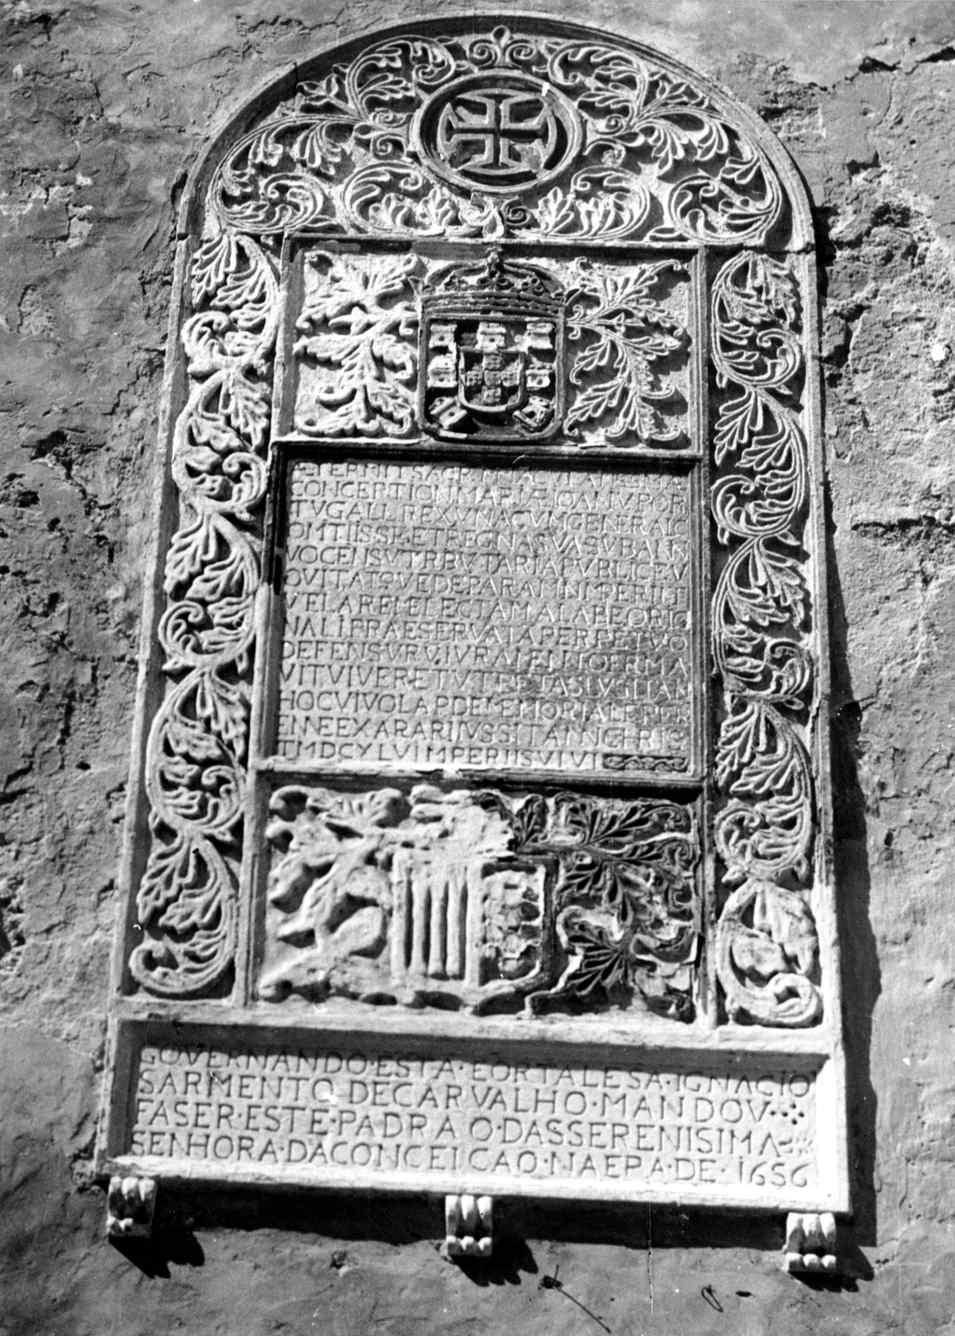 CONCEPTIONI MARIÆ IOAN.IV.POR
TVGALL REX VNA CVM GENERAL C
OMITIIS SE ET REGNA SVA SVB ANN
VO CENSV TRIBVTARIA PVBLICE V
OVIT ATQVE DEIPARAM IMPERII
TVTELAREM ELECTAM A LABE ORIGI
NALI PRÆSERVATAM PERPETVO
DEFENSVRVM IVRAMENTO FIRMA
VIT VIVERET VT PIETAS LVSITAN
HOC VIVO LAPIDE MEMORIALE PER
ENNE EXARARI IVSSIT ANN CHRIS
TI M DCXLVI IMPERII SVI VI
GOVERNANDO·ESTA·FORTALESA·IGNACIO
SARMENTO·DECARVALHO·MANDOV·
FASER·ESTE·PADRAO·DASSERENISIMA·
SENHORA·DACONCEICAO·NAEPA·DE·1656